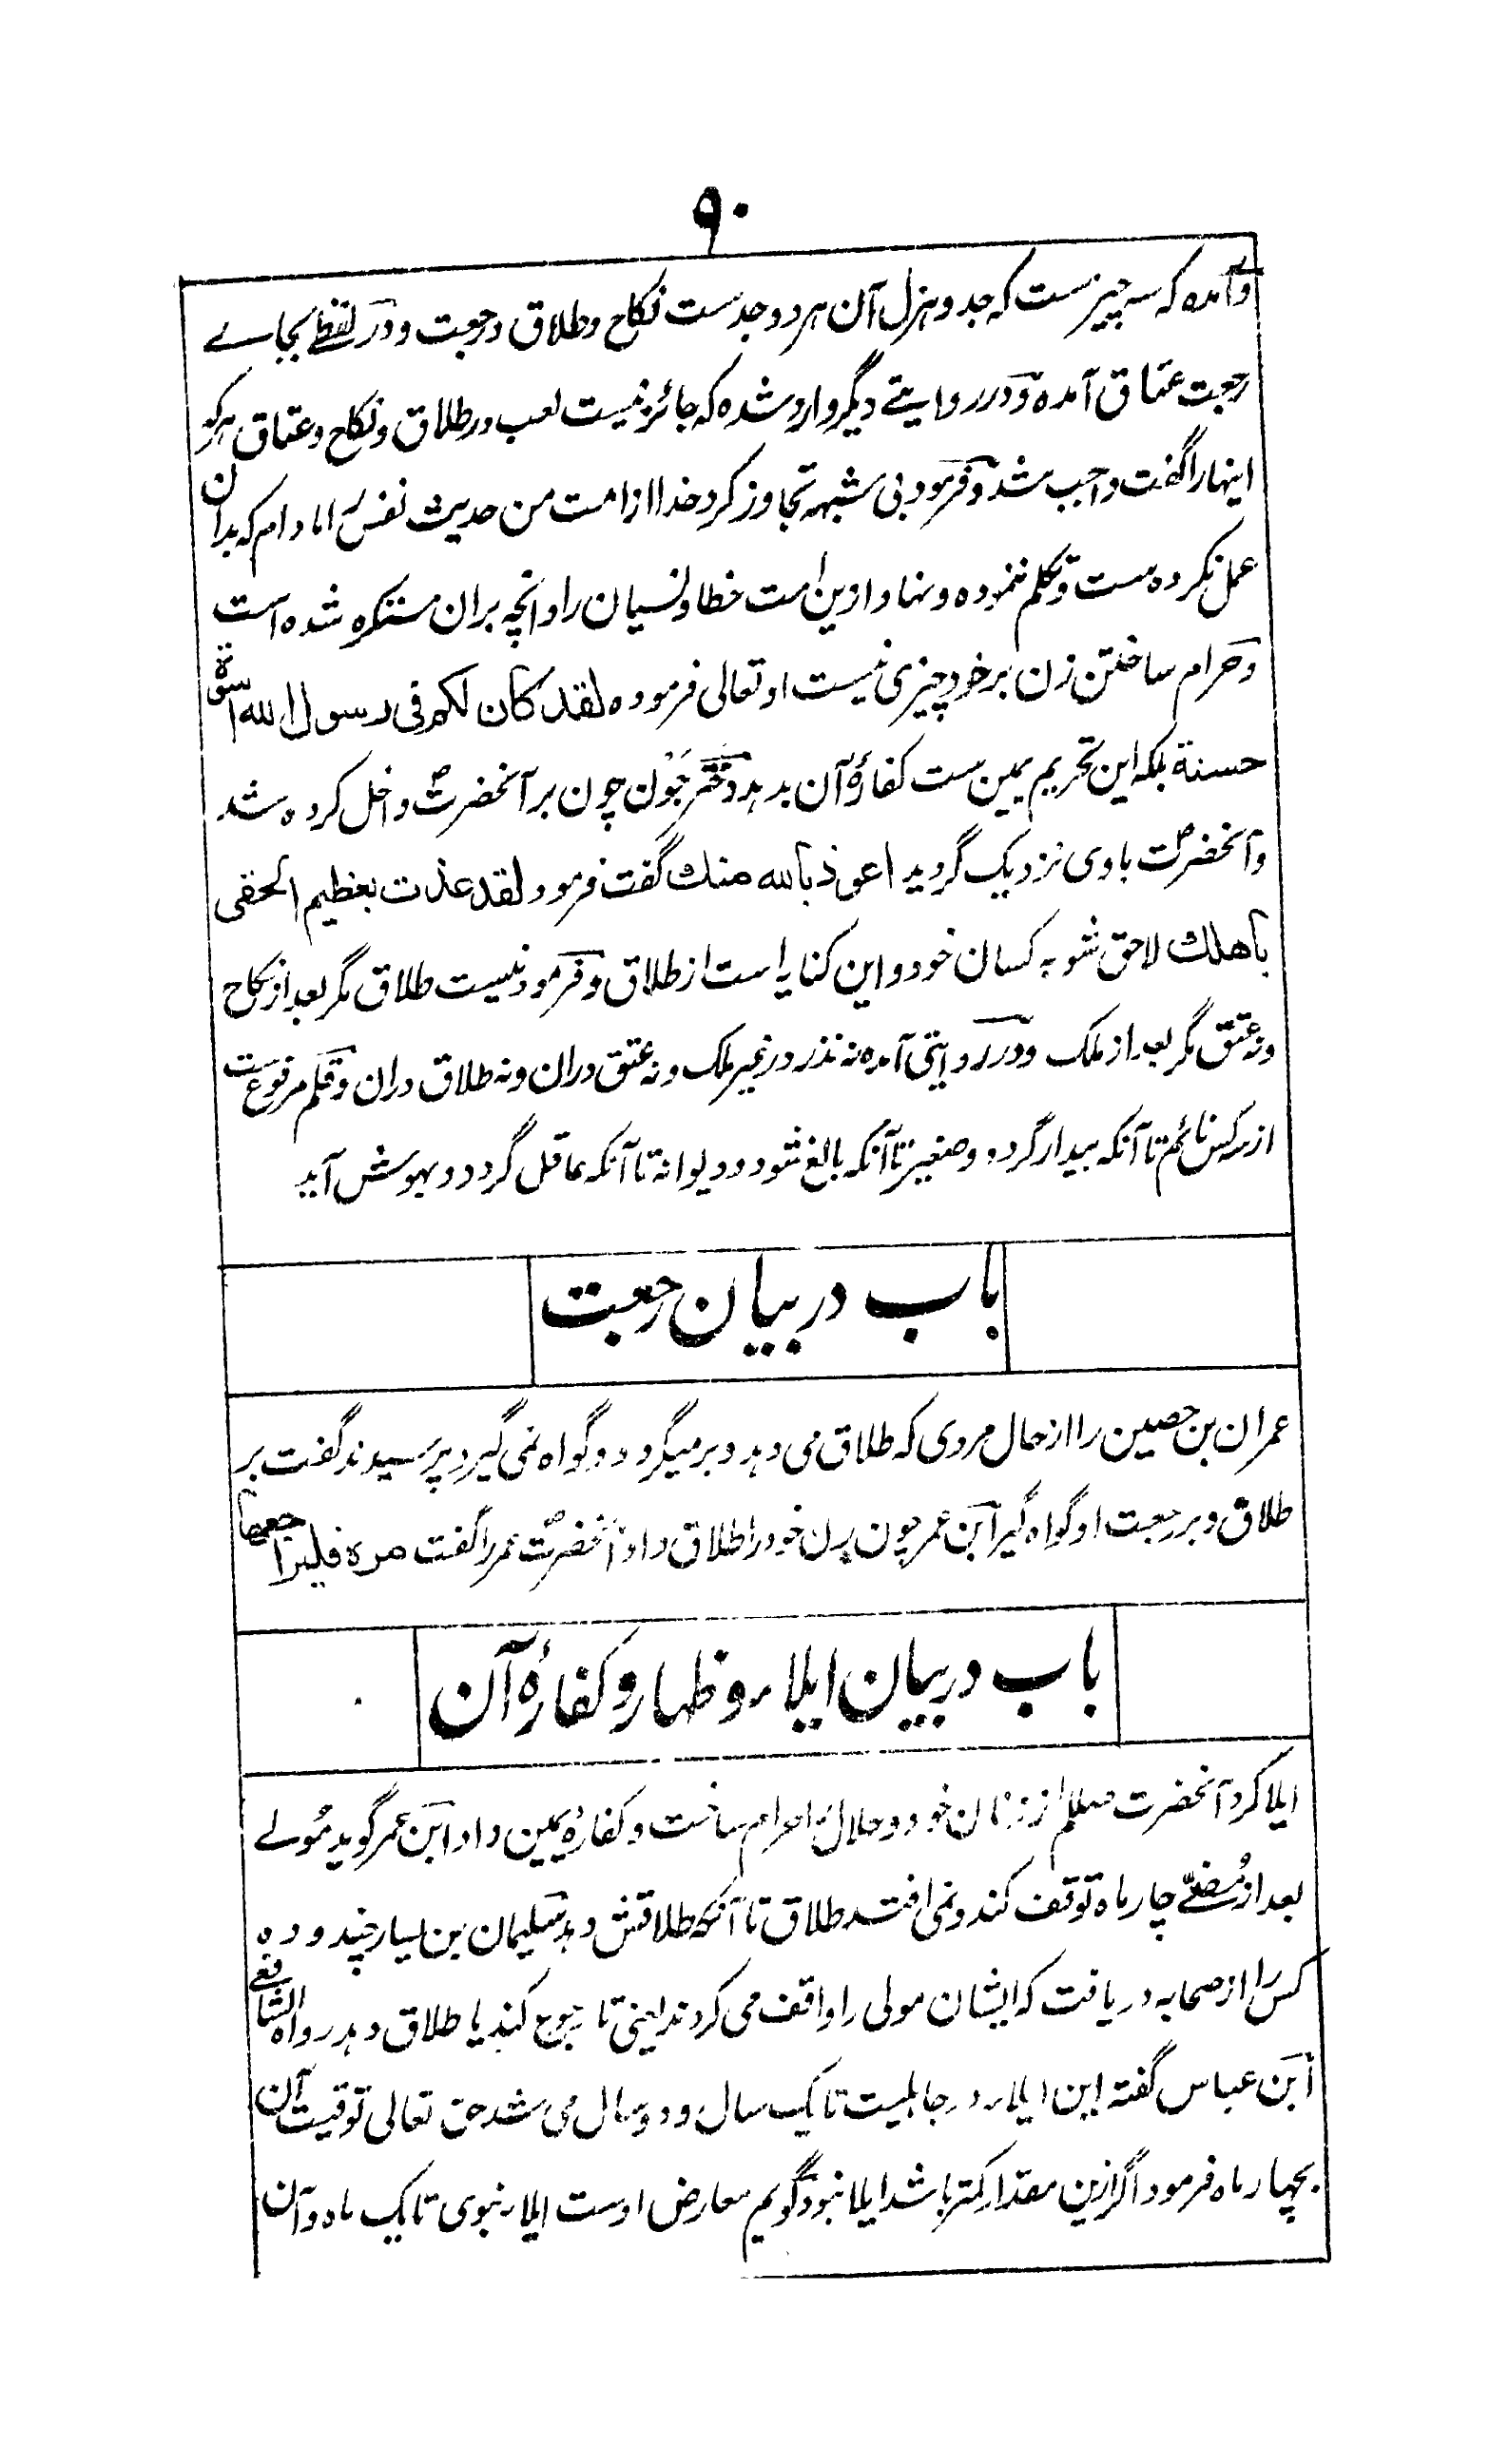 ۹۰
وآمده که سه چیزست که جد و هزل آن هر دو جدست نکاح و طلاق و رجعت و در لفظے بجاے
رجعت عتاق آمده و در روایتے دیگر وارد شده که جائز نیست لعب در طلاق و نکاح و عتاق هر که
اینها را گفت واجب شد و فرمود بی شبهه تجاوز کرد خدا از امت من حدیث نفس را مادام که بدان
عمل نکرده ست و تکلم ننموده و نهاد ازین امت خطا و نسیان را و انچه بران مستکره شده است
و حرام ساختن زن بر خود چیزی نیست او تعالی فرموده لقد كان لكم فى رسول الله اسوة
حسنة بلکه این تحریم یمین ست کفارۂ آن بدهد و دختر جَوْن چون بر آنحضرتؐ داخل کرده شد
و آنحضرتؐ با وی نزدیک گردید اعوذ بالله منك گفت فرمود لقد عذت بعظيم الحقى
باهلك لاحق شو به کسان خود و این کنایه است از طلاق و فرمود نیست طلاق مگر بعد از نکاح
و نه عتق مگر بعد از ملک و در روایتی آمده نه نذر در غیر ملک و نه عتق دران و نه طلاق دران و قلم مرفوع ست
از سه کس نائم تا آنکه بیدار گردد و صغیر تا آنکه بالغ شود و دیوانه تا آنکه عاقل گردد و بهوش آید
باب در بیان رجعت
عمران بن حصین را از حال مردی که طلاق می دهد و بر میگردد و گواه نمی گیرد پرسیدند گفت بر
طلاق و بر رجعت او گواه گیر ابن عمر چون زن خود را طلاق داد آنحضرتؐ عمر را گفت مره فليراجعها
باب در بیان ایلاء و ظهار و کفارۂ آن
ایلا کرد آنحضرت صللم از زنان خود و حلال را حرام ساخت و کفارۂ یمین داد ابن عمر گوید مُولے
بعد از مُضیّ چار ماه توقف کند و نمی افتد طلاق تا آنکه طلاقش دهد سلیمان بن یسار چند و ده
کس را از صحابه دریافت که ایشان مولی را واقف می کردند یعنی تا رجوع کند یا طلاق دهد رواه الشافعے
ابن عباس گفته این ایلاء در جاهلیت تا یک سال و دو سال می شد حق تعالی توقیت آن
بچهار ماه فرمود اگر ازین مقدار کمتر باشد ایلا نبود گویم معارض اوست ایلاء نبوی تا یک ماه و آن